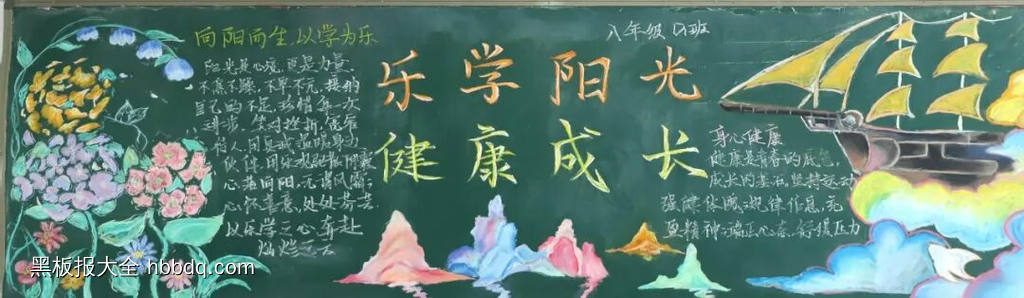 向阳而生,以学为乐
阳光是心境,更是力量,
不焦不躁,不卑不亢,接纳
自己的不足,珍惜每一次
进步,笑对挫折,宽容
待人,用真诚温暖身边
伙伴,用乐观
心若向阳,无惧风霜;
心怀善意,处处芬芳
以乐学之心,奔赴
灿烂
乐学阳光
健康成长
八年级 班
身心健康
健康是青春的底色,
成长的基石,坚持运动
强健体魄,规律作息,元
精神,端正心态,舒缓压力
黑板报大全 hbbdq.com